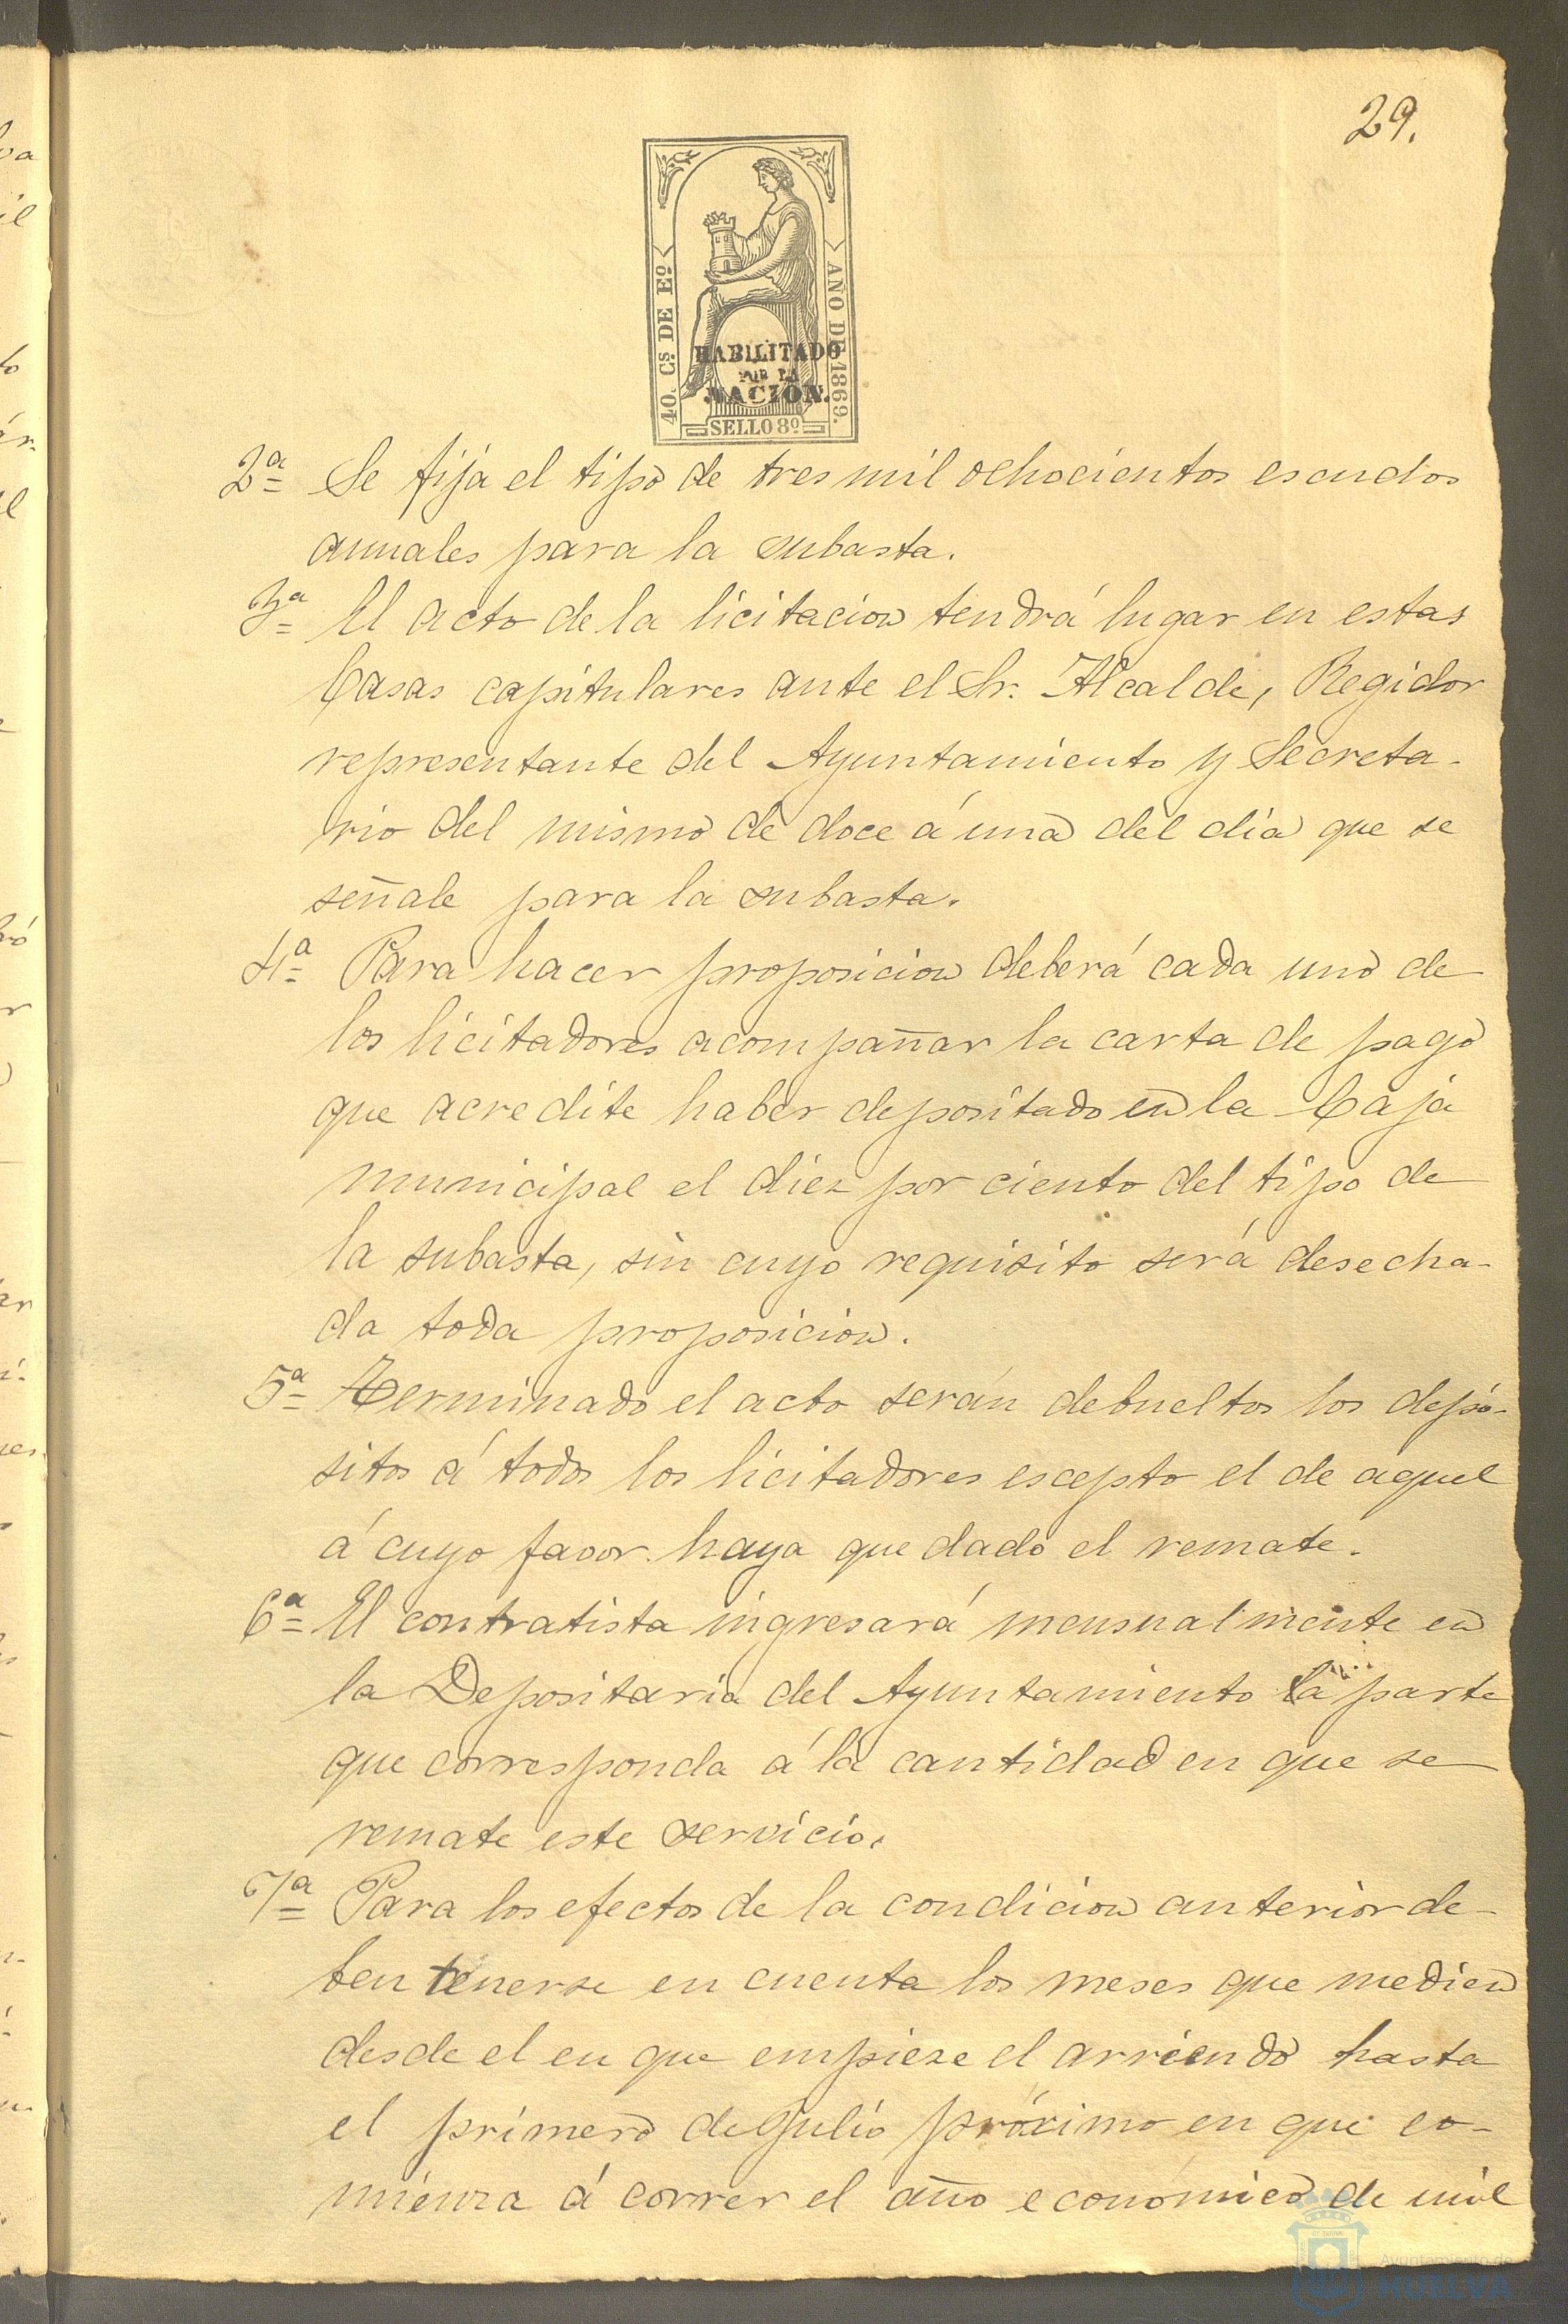 29.
40. Cs. DE Eo.
AÑO DE 1869.
HABILITADO
POR LA
NACION.
SELLO 8º
2ª Se fija el tipo de tres mil ochocientos escudos
anuales para la subasta.
3ª El acto de la licitacion tendrá lugar en estas
Casas capitulares ante el Sr. Alcalde, Regidor
representante del Ayuntamiento y Secreta-
rio del mismo de doce á una del dia que se
señale para la subasta.
4ª Para hacer proposicion deberá cada uno de
los licitadores acompañar la carta de pago
que acredite haber depositado en la Caja
municipal el diez por ciento del tipo de
la subasta, sin cuyo requisito será desecha-
da toda proposicion.
5ª Terminado el acto serán debueltos los depó-
sitos á todos los licitadores escepto el de aquel
á cuyo favor haya quedado el remate.
6ª El contratista ingresará mensualmente en
la Depositaria del Ayuntamiento la parte
que corresponda á la cantidad en que se
remate este servicio.
7ª Para los efectos de la condicion anterior de-
ben tenerse en cuenta los meses que medien
desde el en que empieze el arriendo hasta
el primero de Julio próximo en que co-
mienza á correr el año económico de mil
Ayuntamiento de
HUELVA